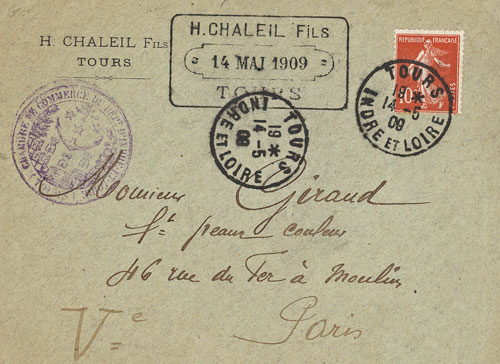 H. CHALEIL FILS
TOURS
H. CHALEIL FILS
14 MAI 1909
TOURS
REPUBLIQUE FRANÇAISE
10
TOURS
19 *
14 - 5
09
INDRE ET LOIRE
TOURS
19 *
14 - 5
09
INDRE ET LOIRE
CHAMBRE DE COMMERCE
Monsieur Giraud
peaux couleur
46 rue du Fer à Moulin
Paris
Ve